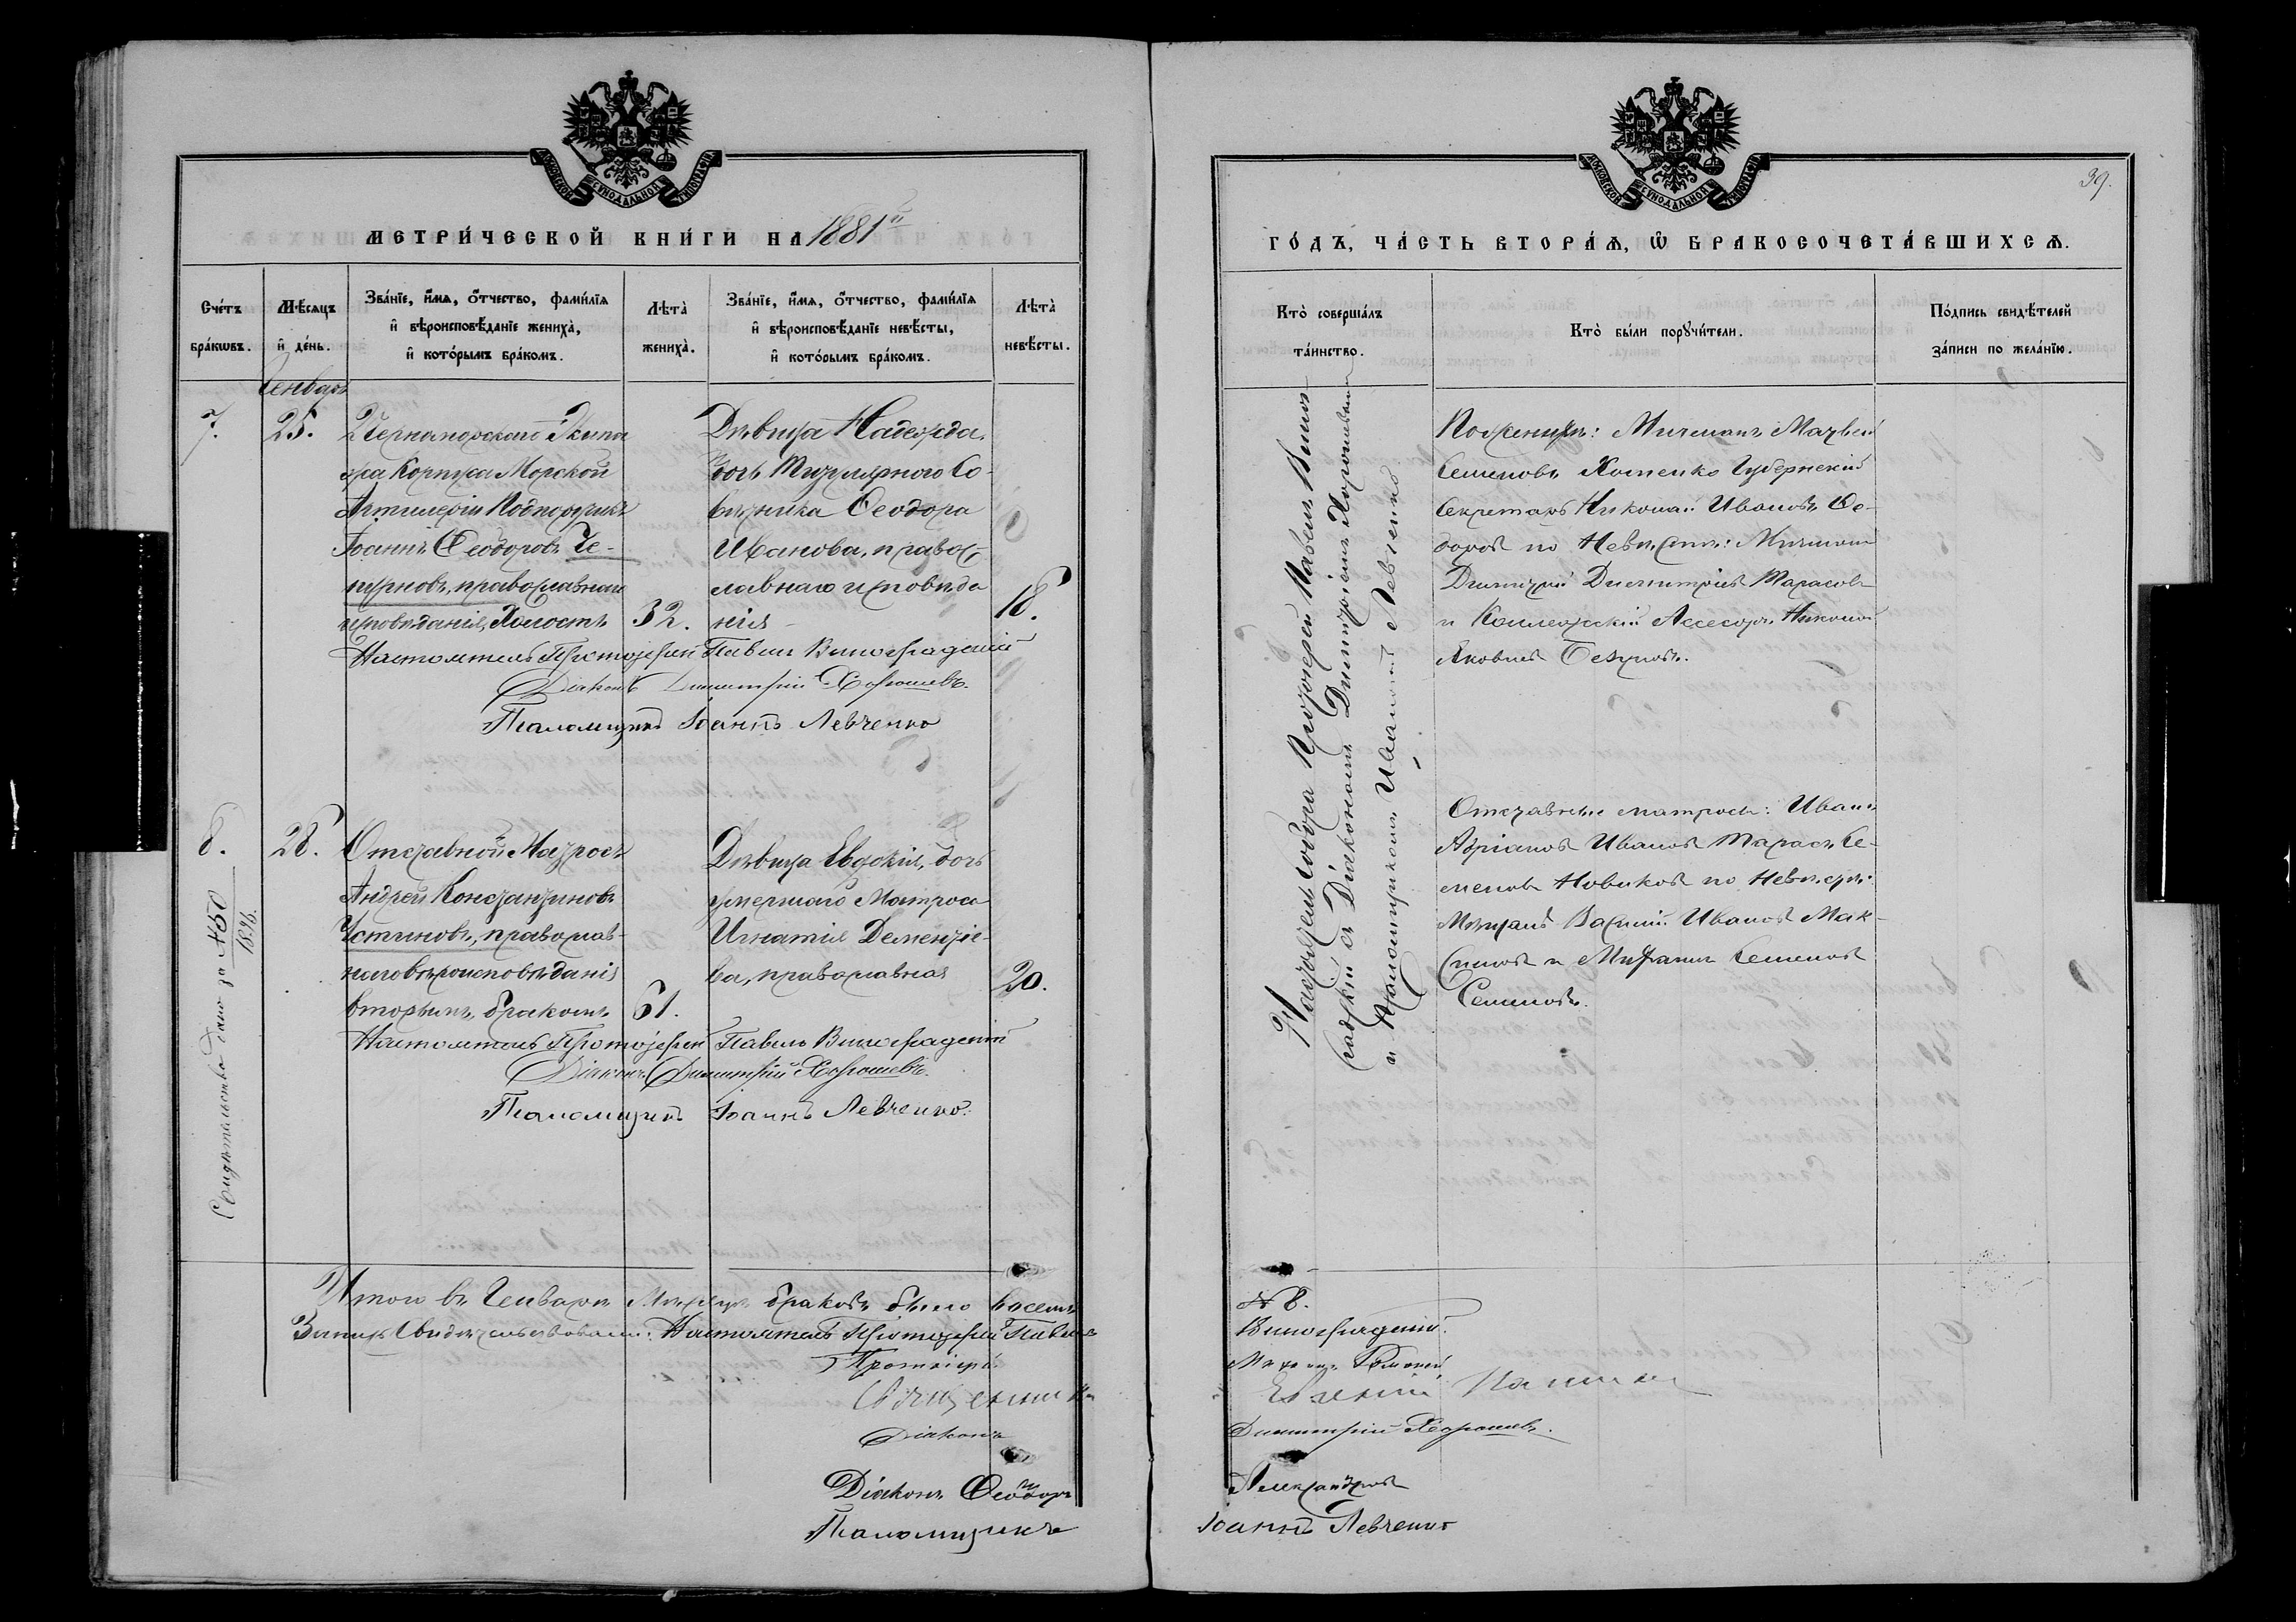 МОСКОВСКОЙ СѴНОДАЛЬНОЙ ТИПОГРАФІИ
МЕТРИ́ЧЕСКОЙ КНИ́ГИ НА 1881й
Сче́тъ бра́кѡвъ.
Мѣ́сяцъ и҆ де́нь.
Зва́нїе, и҆́мѧ, ѻ҆́тчество, фами́лїѧ
и҆ вѣроисповѣ́данїе жениха̀,
и҆ кото́рымъ бра́комъ.
Лѣта̀ жениха̀.
Зва́нїе, и҆́мѧ, ѻ҆́тчество, фами́лїѧ
и҆ вѣроисповѣ́данїе невѣ́сты,
и҆ кото́рымъ бра́комъ.
Лѣта̀ невѣ́сты.
Генварь
7.
25.
Черноморскаго Экипа
жа Корпуса Морской
Артилеріи Подпоручикъ
Іоаннъ Ѳеодоровъ Че-
православнаго
исповѣданія, Холостъ
32.
Дѣвица Надежда,
дочь Титулярного Со-
вѣтника Ѳеодора
Иванова, правос-
лавнаго исповѣда
нія
18.
Настоятель Протоіерей Павелъ Виноградскій
Діаконъ Димитрій Хорошевъ.
Псаломщикъ Іоаннъ Левченко
8.
28.
Свидѣтельство дано за № 50
Отставной Матросъ
Андрей Константиновъ
Устиновъ, православ-
наго вѣроисповѣданія
вторымъ бракомъ
61.
Дѣвица Евдокія, дочь
умершаго Матроса
Игнатія Дементіе-
ва, православная
20.
Настоятель Протоіерей Павелъ Виноградскій
Діаконъ Димитрій Хорошевъ.
Псаломщикъ Іоаннъ Левченко.
Итого въ Генварѣ Мѣсяцѣ браковъ было восемь
Запись свидѣтельствовали: Настоятель Протоіерей Павелъ
Протоіерей
Священникъ
Діаконъ
Діаконъ Ѳеодоръ
Псаломщикъ
МОСКОВСКОЙ СѴНОДАЛЬНОЙ ТИПОГРАФІИ
39.
ГО́ДЪ, ЧА́СТЬ ВТОРА́Ѧ, Ѡ҆ БРАКОСОЧЕТА́ВШИХСѦ.
Кто̀ соверша́лъ
та́инство.
Кто̀ бы́ли порꙋчи́тели.
По́дпись свидѣ́телей
за́писи по жела́нїю.
Настоятель собора Протоіерей Павелъ Виног
радскій съ Діакономъ Димитріемъ Хорошевымъ
и Псаломщикомъ Иваномъ Левченко
По женихѣ: Мичманъ Матвей
Семеновъ Хоменко Губернскій
Секретарь Николай Ивановъ Ѳе-
доровъ по Невѣстѣ: Мичманъ
Дмитрій Димитріевъ Тарасовъ
и Коллежскій Ассесоръ Николай
Яковлевъ
Отставные матросы: Иванъ
Адріановъ Ивановъ Тарасъ Се-
меновъ Новиковъ по Невѣстѣ:
Мѣщане Василій Ивановъ Мак-
симовъ и Семеновъ
Семеновъ.
№ 8.
Виноградскій.
Евгеній
Димитрій Хорошевъ.
Александровъ
Іоаннъ Левченко